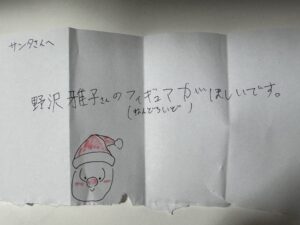 サンタさんへ
野沢雅子さんのフィギュアがほしいです。
(ねんどろいど)